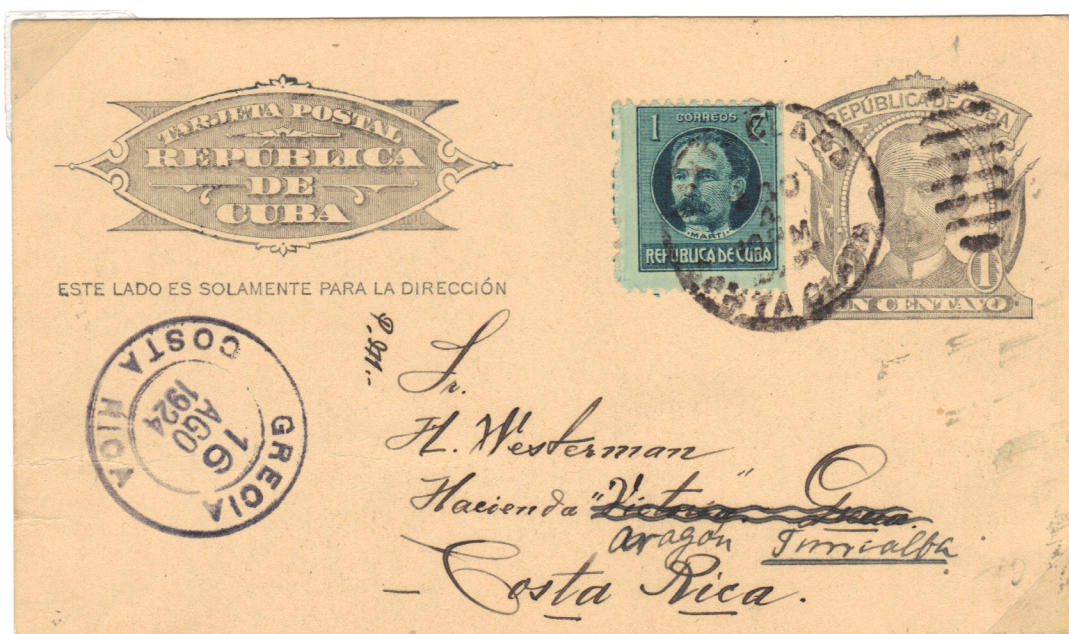 TARJETA POSTAL
REPÚBLICA
DE
CUBA
ESTE LADO ES SOLAMENTE PARA LA DIRECCIÓN
CORREOS
1 ¢
MARTI
REPÚBLICA DE CUBA
REPÚBLICA DE CUBA
1
UN CENTAVO
GRECIA
COSTA RICA
16
AGO
1924
Sr.
H. Westerman
Hacienda "Victoria"
aragón Turrialba
Costa Rica.